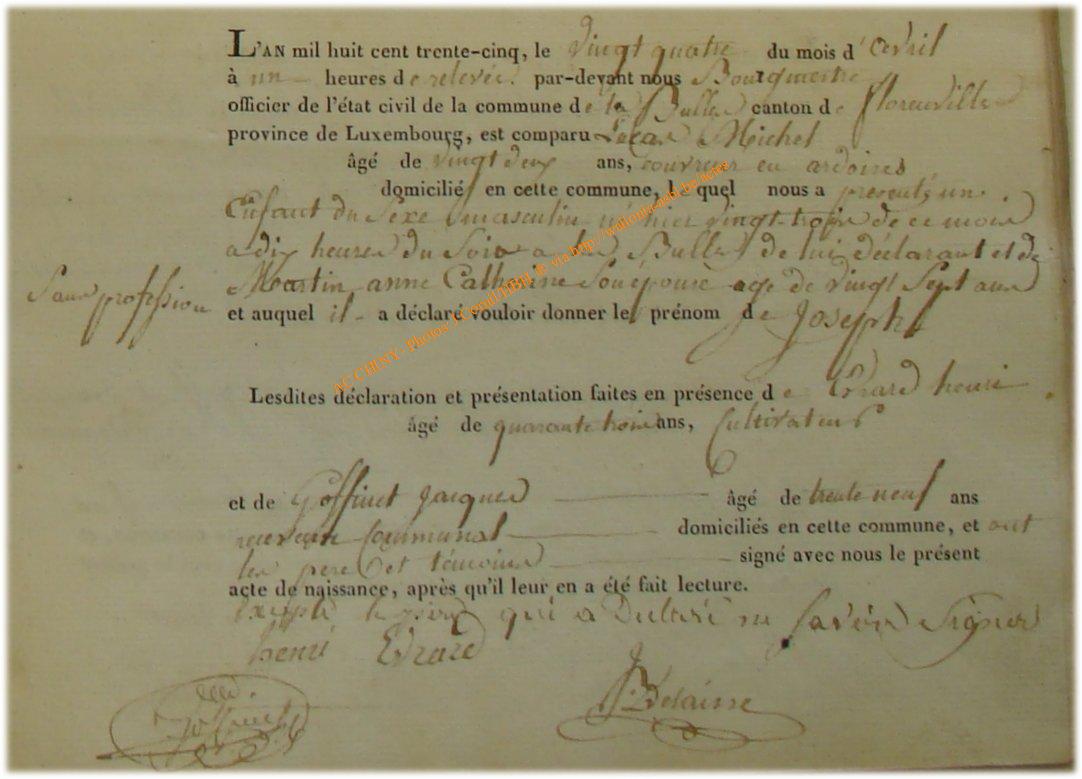 L'AN mil huit cent trente-cinq, le vingt quatre du mois d'avril
à un heures de relevée. par-devant nous Bourgmestre
officier de l'état civil de la commune de la Bulles canton de florenville
province de Luxembourg, est comparu Michel
âgé de vingt deux ans, couvreur en ardoises
domicilié en cette commune, lequel nous a presenté un
Enfant du Sexe masculin né hier vingt trois de ce mois
a dix heures du Soir a la Bulles de lui déclarant et de
Martin anne Catherine Son épouse age de vingt Sept ans
Sans profession
et auquel il a déclaré vouloir donner le prénom de Joseph
AC CHINY - Photos via http://wallonia-asbl.be/actes
Lesdites déclaration et présentation faites en présence de Evrard henri
âgé de quarante trois ans, Cultivateur
et de Goffinet Jacques âgé de trente neuf ans
receveur Communal domiciliés en cette commune, et ont
les pere et témoins signé avec nous le présent
acte de naissance, après qu'il leur en a été fait lecture.
Excepté le qui a Declaré ne Savoir Signer
henri Evrard